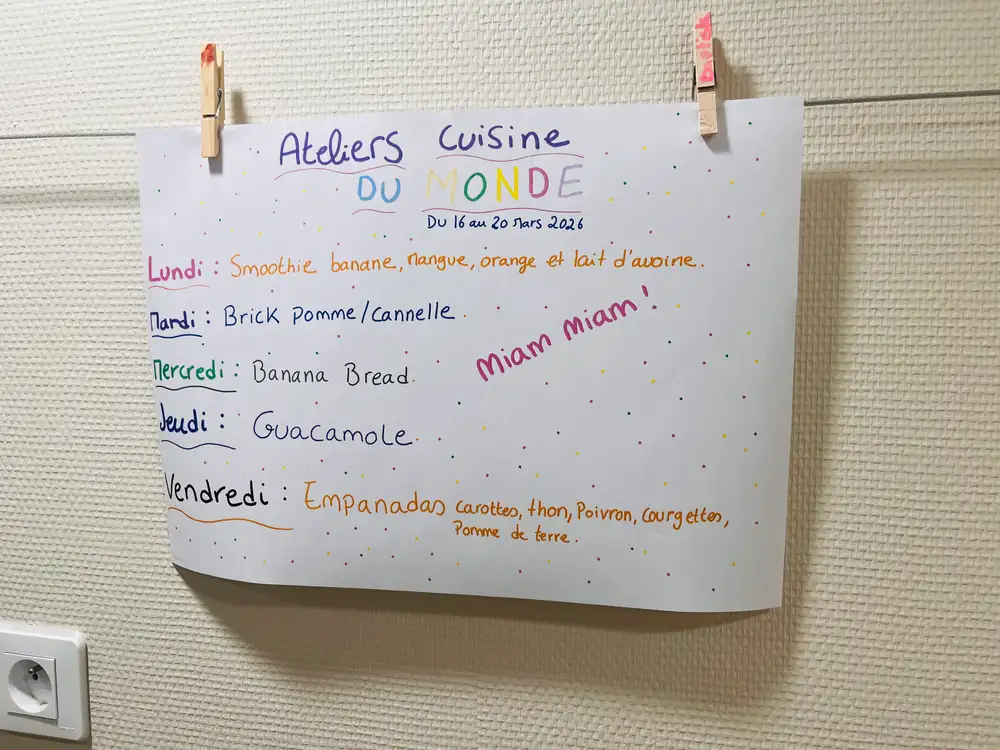 Ateliers Cuisine
DU MONDE
Du 16 au 20 Mars 2026
Lundi : Smoothie banane, Mangue, orange et lait d'avoine.
Mardi : Brick Pomme/Cannelle.
Miam Miam !
Mercredi : Banana Bread.
Jeudi : Guacamole.
Vendredi : Empanadas carottes, thon, Poivron, courgettes,
Pomme de terre.